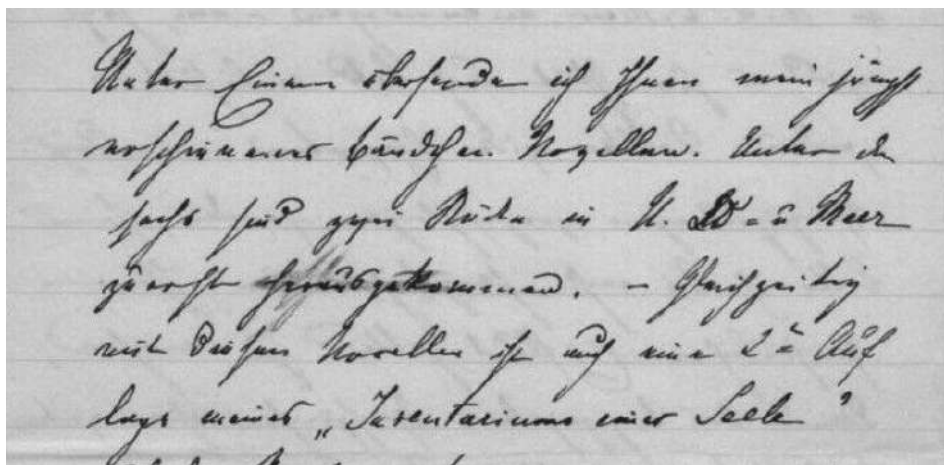 Unter Einem übersende ich Ihnen mein jüngst
erschienenes Bändchen Novellen. Unter den
sechs sind zwei Stücke in U. L. & Meer
zuerst herausgekommen. – Gleichzeitig
mit diesen Novellen ist auch eine 2te Auf
lage meines „Inventariums einer Seele"